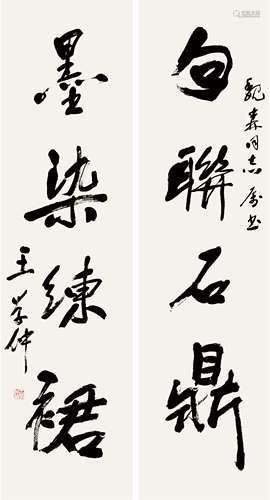 句聯石鼎
魏森同志屬書
墨染練裙
王學仲